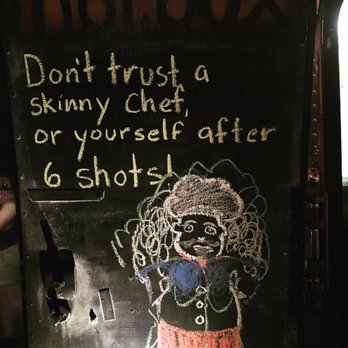 Don't trust a
skinny Chef,
or yourself after
6 shots!